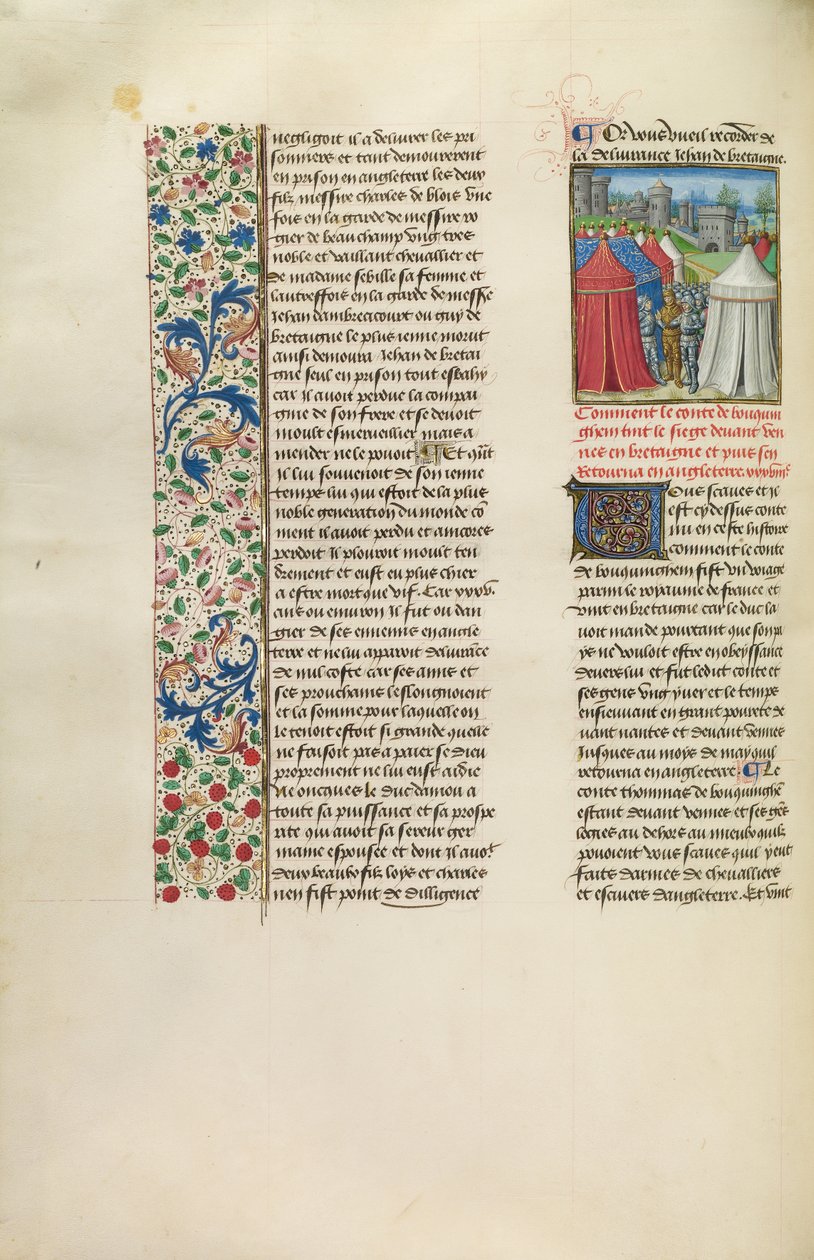 negligoit il a delivrer les pri
sonniers et tant demourerent
en prison en angleterre les deux
filz messire charles de blois vne
fois en la garde de messire ro
gier de beauchamp vng tres
noble et vaillant chevallier et
de madame sebille sa femme et
lautreffois en la garde de messire
Iehan dambrecicourt ou guy de
bretaigne le plus ienne morut
ainsi demoura Iehan de bretai
gne seul en prison tout esbahy
car il avoit perdue la compai
gnie de son frere et se devoit
moult esmerveillier mais a
mender ne le pouoit Et qnt
Il lui souvenoit de son ienne
temps lui qui estoit de la plus
noble generation du monde co
ment il avoit perdu et ancores
perdoit Il plouroit moult ten
drement et eust eu plus chier
a estre mort que vif. Car xxxv.
ans ou environ Il fut ou dan
gier de ses ennemis en angle
terre et ne lui apparoit delivrace
de nul coste car ses amis et
ses prouchains leslongnoient
et la somme pour laquelle on
le tenoit estoit si grande quelle
ne faisoit pas a paier se dieu
proprement ne lui eust aidie
Ne oncques le duc daniou a
toute sa puissance et sa prospe
rite qui avoit sa sereur ger
maine espousee et dont il avoit
deux beaux filz loys et charles
nen fist point de dilligence
Or vous vueil recorder de
la delivrance Iehan de bretaigne.
Comment le conte de bouquin
ghem tint le siege devant ven
nes en bretaigne et puis sen
Retourna en angleterre.
Vous scaves et il
est cy dessus conte
nu en ceste histoire
comment le conte
de bouquinghem fist vn voiage
parmi le royaume de france et
vint en bretaigne car le duc la
uoit mande pourtant que son pa
ys ne vouloit estre en obeyssance
devers lui et fut ledit conte et
ses gens vng yver et le temps
ensieuuant en grant pourete de
uant nantes et devant vennes
Iusques au moys de may quil
retourna en angleterre Le
conte thommas de bouquinghem
estant devant vennes et ses gens
logies au dehors au mieulx quilz
pouoient vous scaves quil y eut
faits darmes de chevalliers
et escuiers dangleterre. Et vint